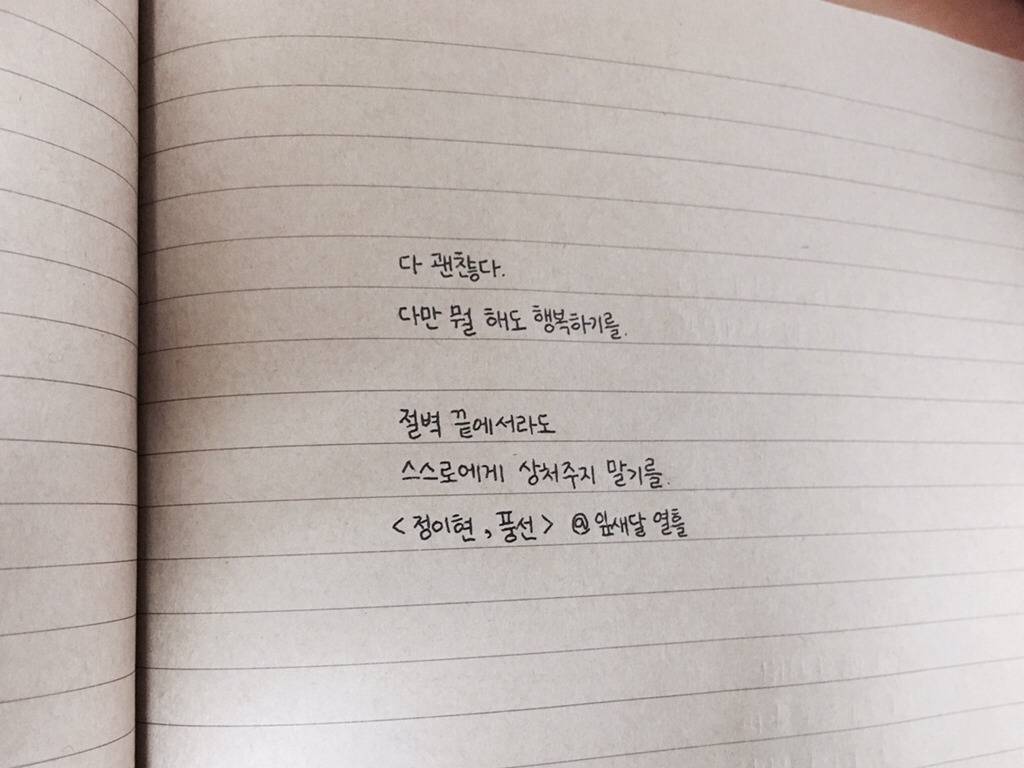 다 괜찮다.
다만 뭘 해도 행복하기를.
절벽 끝에서라도
스스로에게 상처주지 말기를.
<정이현, 풍선> @잎새달 열흘